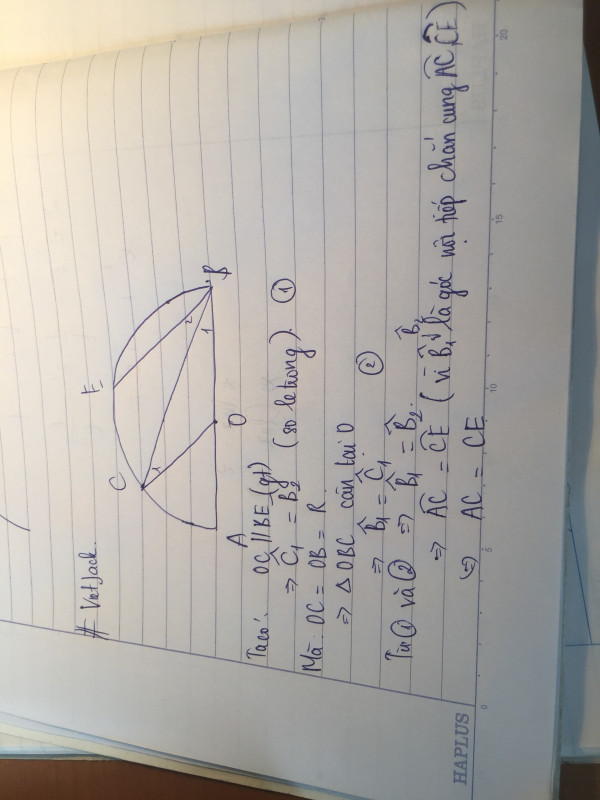 # VietJack.
E
C
1
2
1
B
A
O
Ta có: OC // BE (gt)
⇒ Ĉ₁ = B̂₂ (so le trong). ①
Mà: OC = OB = R
⇒ △ OBC cân tại O
⇒ B̂₁ = Ĉ₁ ②
Từ ① và ② ⇒ B̂₁ = B̂₂.
⇒ A͡C = C͡E ( vì B̂₁, B̂₂ là góc nội tiếp chắn cung A͡C, C͡E )
⇔ AC = CE
HAPLUS 0 5 10 15 20